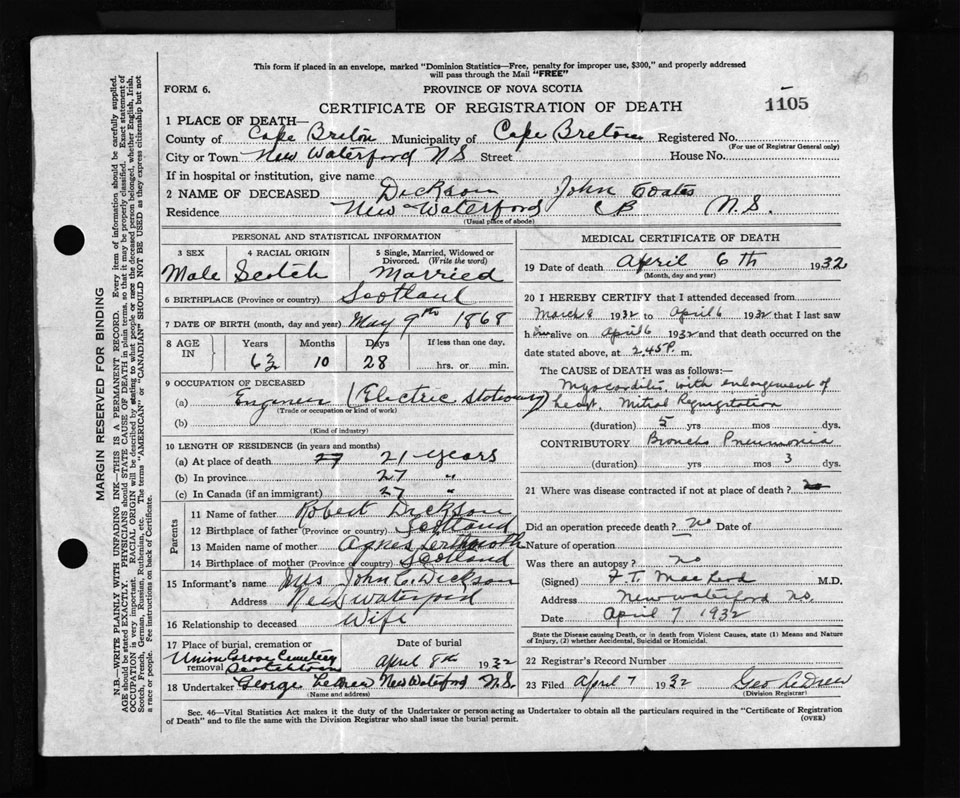 This form if placed in an envelope, marked "Dominion Statistics—Free, penalty for improper use, $300," and properly addressed
will pass through the Mail "FREE"
FORM 6. PROVINCE OF NOVA SCOTIA
CERTIFICATE OF REGISTRATION OF DEATH 1105
1 PLACE OF DEATH—
County of Cape Breton Municipality of Cape Breton Registered No.
(For use of Registrar General only)
City or Town New Waterford N S Street House No.
If in hospital or institution, give name
2 NAME OF DECEASED Dickson John Coates
Residence New Waterford CB N.S.
(Usual place of abode)
PERSONAL AND STATISTICAL INFORMATION
3 SEX 4 RACIAL ORIGIN 5 Single, Married, Widowed or Divorced. (Write the word)
Male Scotch Married
6 BIRTHPLACE (Province or country) Scotland
7 DATE OF BIRTH (month, day and year) May 9th 1868
8 AGE IN Years Months Days If less than one day.
63 10 28 hrs. or min.
9 OCCUPATION OF DECEASED
(a) Engineer (Electric Stationary)
(Trade or occupation or kind of work)
(b)
(Kind of industry)
10 LENGTH OF RESIDENCE (in years and months)
(a) At place of death 27 21 years
(b) In province 27 "
(c) In Canada (if an immigrant) 27 "
Parents
11 Name of father Robert Dickson
12 Birthplace of father (Province or country) Scotland
13 Maiden name of mother Agnes
14 Birthplace of mother (Province or country) Scotland
15 Informant's name Mrs John C. Dickson
Address New Waterford
16 Relationship to deceased Wife
17 Place of burial, cremation or removal Date of burial
Union Grove Cemetery Scotchtown April 8th 1932
18 Undertaker George New Waterford N.S.
(Name and address)
MEDICAL CERTIFICATE OF DEATH
19 Date of death April 6th 1932
(Month, day and year)
20 I HEREBY CERTIFY that I attended deceased from
March 9 1932 to April 6 1932 that I last saw
him alive on April 6 1932 and that death occurred on the
date stated above, at 2.45 P. m.
The CAUSE of DEATH was as follows:—
Myocarditis, with enlargement of
heart. Mitral Regurgitation
(duration) 5 yrs mos dys.
CONTRIBUTORY Broncho Pneumonia
(duration) yrs mos 3 dys.
21 Where was disease contracted if not at place of death?
Did an operation precede death? no Date of
Nature of operation
Was there an autopsy? no
(Signed) F. T. MacLeod M.D.
Address New Waterford N.S.
Date April 7 1932
State the Disease causing Death, or in death from Violent Causes, state (1) Means and Nature
of Injury, (2) whether Accidental, Suicidal or Homicidal.
22 Registrar's Record Number
23 Filed April 7 1932 Geo
(Division Registrar)
Sec. 46—Vital Statistics Act makes it the duty of the Undertaker or person acting as Undertaker to obtain all the particulars required in the "Certificate of Registration
of Death" and to file the same with the Division Registrar who shall issue the burial permit.
(OVER)
MARGIN RESERVED FOR BINDING
N.B.—WRITE PLAINLY WITH UNFADING INK—THIS IS A PERMANENT RECORD. Every item of information should be carefully supplied.
AGE should be stated EXACTLY. PHYSICIANS should STATE CAUSE OF DEATH in plain terms, so that it may be properly classified. Exact statement of
OCCUPATION is very important. RACIAL ORIGIN will be described by stating to what people or race the deceased person belonged, whether English, Irish,
Scotch, French, German, Russian, Ruthenian, etc. The terms "AMERICAN" or "CANADIAN" SHOULD NOT BE USED as they express citizenship but not
a race or people. See instructions on back of Certificate.